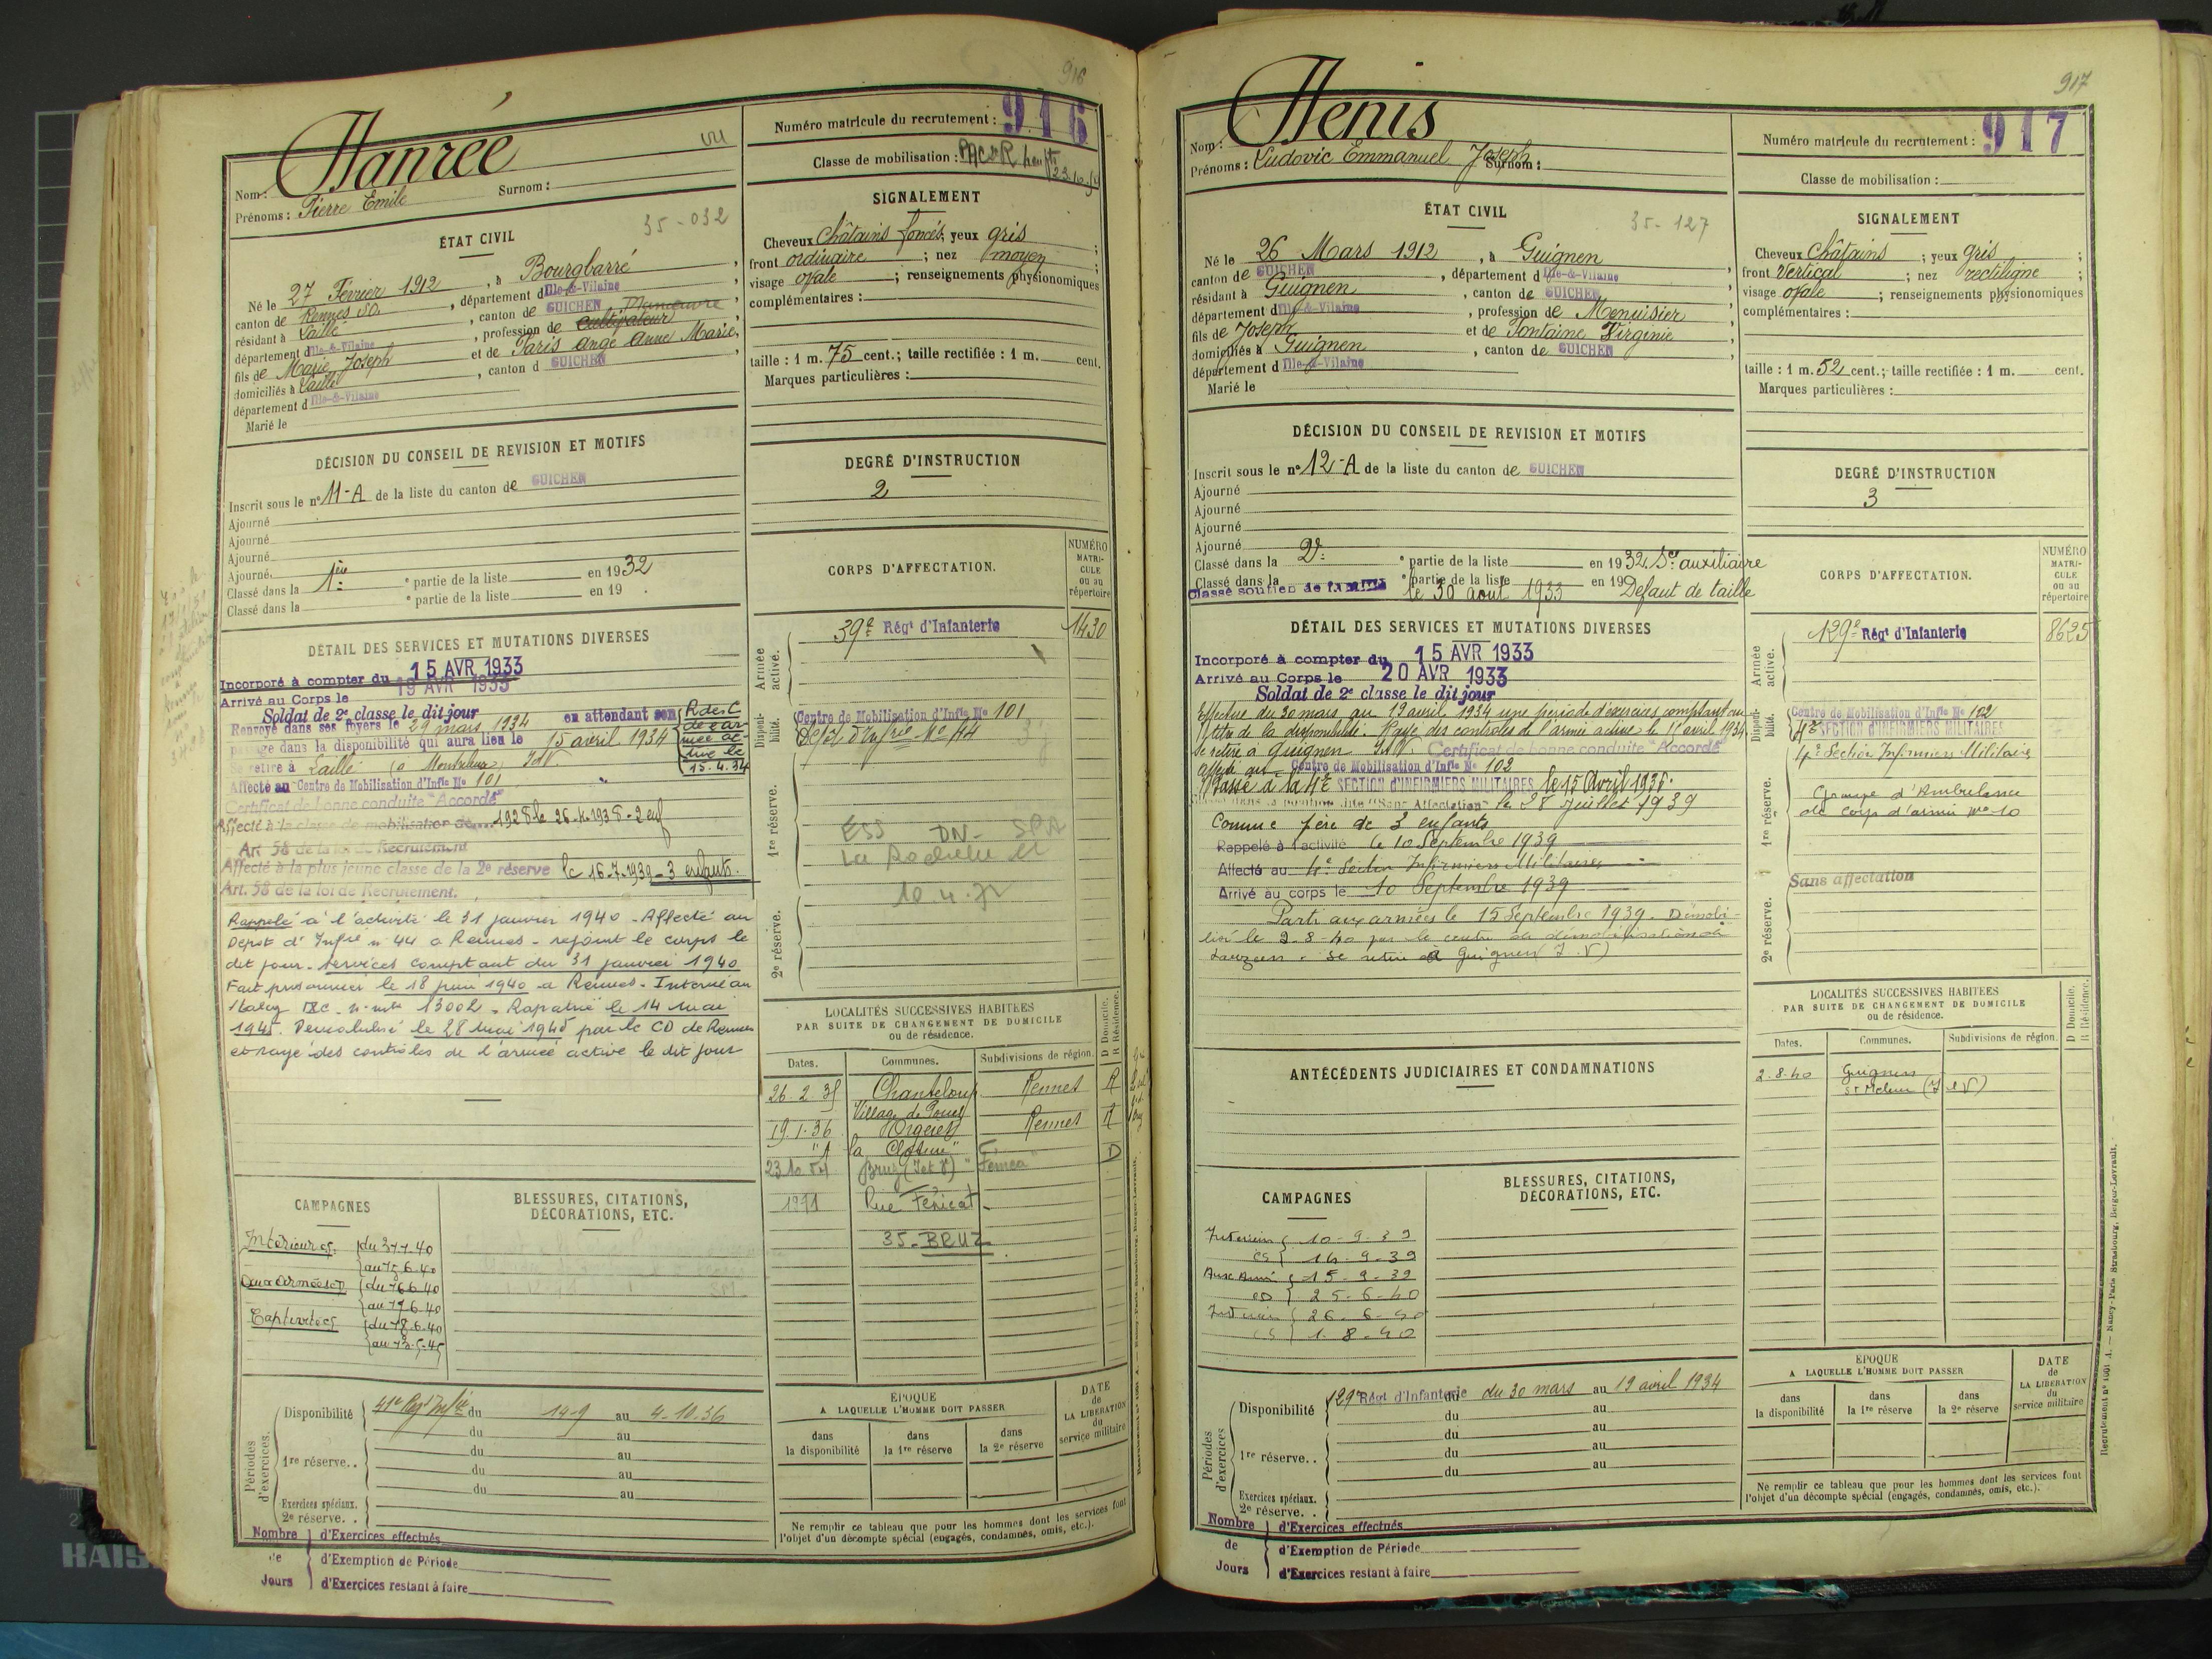 916
Nom : Hanrée
vu
Prénoms : Pierre Emile Surnom :
Numéro matricule du recrutement : 916
Classe de mobilisation : PAC
23.10.
ÉTAT CIVIL
35-032
Né le 27 Février 1912, à Bourgbarré,
canton de Rennes SO., département d Ille-&-Vilaine
résidant à Laillé, canton de GUICHEN
département d Ille-&-Vilaine, profession de cultivateur Manœuvre
fils de Marie Joseph et de Paris Ange Anne Marie,
domiciliés à Laillé, canton d GUICHEN
département d Ille-&-Vilaine
Marié le
SIGNALEMENT
Cheveux Châtains foncés; yeux gris ;
front ordinaire ; nez moyen ;
visage ovale ; renseignements physionomiques
complémentaires :
taille : 1 m. 75 cent.; taille rectifiée : 1 m. cent.
Marques particulières :
DÉCISION DU CONSEIL DE REVISION ET MOTIFS
Inscrit sous le n° 11-A de la liste du canton de GUICHEN
Ajourné
Ajourné
Ajourné
Ajourné
Classé dans la 1ère ° partie de la liste en 1932
Classé dans la ° partie de la liste en 19 .
DEGRÉ D'INSTRUCTION
2
DÉTAIL DES SERVICES ET MUTATIONS DIVERSES
Incorporé à compter du 15 AVR 1933
Arrivé au Corps le 19 AVR 1933
Soldat de 2e classe le dit jour
Renvoyé dans ses foyers le 29 mars 1934 en attendant son
passage dans la disponibilité qui aura lieu le 15 avril 1934
R des C
de l'ar
mée ac
tive le
15.4.34
Se retire à Laillé
Affecté au Centre de Mobilisation d'Infie No 101
Certificat de bonne conduite "Accordé"
Affecté à la classe de mobilisation de 1928 le 26-4-1938 - 2 enf
Art 58 de la loi de Recrutement
Affecté à la plus jeune classe de la 2e réserve le 16-7-1939 - 3 enfants.
Art. 58 de la loi de Recrutement.
Rappelé à l'activité le 31 janvier 1940 - Affecté au
Dépôt d'Infie n° 44 à Rennes - rejoint le corps le
dit jour - services comptant du 31 janvier 1940
Fait prisonnier le 18 juin 1940 à Rennes - Interné au
Stalag IX C - n° mle 13002 - Rapatrié le 14 mai
1945. Démobilisé le 28 mai 1945 par le CD de Rennes
et rayé des contrôles de l'armée active le dit jour
CORPS D'AFFECTATION.
NUMÉRO MATRICULE ou au répertoire
Armée active.
39e Régt d'Infanterie 1430
Disponibilité.
Centre de Mobilisation d'Infie No 101
Dépôt d'Infrie No 44
1re réserve.
ESS DN- SPA
La Rochelle
10.4.72
2e réserve.
LOCALITÉS SUCCESSIVES HABITÉES
PAR SUITE DE CHANGEMENT DE DOMICILE
ou de résidence.
Dates. Communes. Subdivisions de région. D Domicile. R Résidence.
26.2.35 Chanteloup Rennes R
Village de
19.1.36 Orgères Rennes R
"à la Closerie" D
23.10.54 Bruz (I et V)
1971 Rue
35-BRUZ
CAMPAGNES
BLESSURES, CITATIONS, DÉCORATIONS, ETC.
Intérieur CS. du 31-1-40
au 15-6-40
Aux Armées CD du 16-6-40
au 17-6-40
Captivité CS du 18-6-40
au 13-5-45
Périodes d'exercices.
Disponibilité 41e Régt Infie du 14-9 au 4-10-36
du au
1re réserve.. du au
du au
du au
Exercices spéciaux.
2e réserve..
Nombre de Jours
d'Exercices effectués
d'Exemption de Période
d'Exercices restant à faire
ÉPOQUE
A LAQUELLE L'HOMME DOIT PASSER
dans la disponibilité
dans la 1re réserve
dans la 2e réserve
DATE de LA LIBÉRATION du service militaire
Ne remplir ce tableau que pour les hommes dont les services font
l'objet d'un décompte spécial (engagés, condamnés, omis, etc.).
917
Nom : Henis
Prénoms : Ludovic Emmanuel Joseph Surnom :
Numéro matricule du recrutement : 917
Classe de mobilisation :
ÉTAT CIVIL
35-127
Né le 26 Mars 1912, à Guignen
canton de GUICHEN, département d Ille-&-Vilaine
résidant à Guignen, canton de GUICHEN
département d Ille-&-Vilaine, profession de Menuisier
fils de Joseph et de Fontaine Virginie
domiciliés à Guignen, canton de GUICHEN
département d Ille-&-Vilaine
Marié le
SIGNALEMENT
Cheveux Châtains ; yeux gris ;
front Vertical ; nez rectiligne ;
visage ovale ; renseignements physionomiques
complémentaires :
taille : 1 m. 52 cent.; taille rectifiée : 1 m. cent.
Marques particulières :
DÉCISION DU CONSEIL DE REVISION ET MOTIFS
Inscrit sous le n° 12-A de la liste du canton de GUICHEN
Ajourné
Ajourné
Ajourné
Ajourné
Classé dans la 2e ° partie de la liste en 1932. Sce auxiliaire
Classé dans la ° partie de la liste en 19 Défaut de taille
Classé soutien de famille le 30 août 1933
DEGRÉ D'INSTRUCTION
3
DÉTAIL DES SERVICES ET MUTATIONS DIVERSES
Incorporé à compter du 15 AVR 1933
Arrivé au Corps le 20 AVR 1933
Soldat de 2e classe le dit jour
Effectue du 30 mars au 19 avril 1934 une période d'exercices comptant au
titre de la disponibilité. Rayé des contrôles de l'armée active le 15 avril 1934
Se retire à Guignen I&V Certificat de bonne conduite "Accordé"
Affecté au Centre de Mobilisation d'Infie No 102
Passé à la 4e SECTION D'INFIRMIERS MILITAIRES le 15 Avril 1935.
"Sans Affectation" le 28 Juillet 1939
Comme père de 3 enfants
Rappelé à l'activité le 10 Septembre 1939
Affecté au 4e Section Infirmiers Militaires
Arrivé au corps le 10 Septembre 1939
Parti aux armées le 15 Septembre 1939. Démobi-
lisé le 2-8-40 par le centre de démobilisation de
Lauzun. Se retire à Guignen (I.V)
CORPS D'AFFECTATION.
NUMÉRO MATRICULE ou au répertoire
Armée active.
129e Régt d'Infanterie 8625
Disponibilité.
Centre de Mobilisation d'Infie No 102
4e SECTION D'INFIRMIERS MILITAIRES
4e Section Infirmiers Militaires
1re réserve.
Groupe d'Ambulance
de Corps d'armée No 10
Sans affectation
2e réserve.
ANTÉCÉDENTS JUDICIAIRES ET CONDAMNATIONS
LOCALITÉS SUCCESSIVES HABITÉES
PAR SUITE DE CHANGEMENT DE DOMICILE
ou de résidence.
Dates. Communes. Subdivisions de région. D Domicile. R Résidence.
2.8.40 Guignen
(I et V)
CAMPAGNES
BLESSURES, CITATIONS, DÉCORATIONS, ETC.
Intérieur 10-9-39
CS 14-9-39
Aux Armées 15-9-39
CD 25-6-40
Intérieur 26-6-40
CS 1-8-40
Périodes d'exercices
Disponibilité 129e Régt d'Infanterie du 30 mars au 19 avril 1934
du au
1re réserve.. du au
du au
du au
Exercices spéciaux.
2e réserve..
Nombre de Jours
d'Exercices effectués
d'Exemption de Période
d'Exercices restant à faire
ÉPOQUE
A LAQUELLE L'HOMME DOIT PASSER
dans la disponibilité
dans la 1re réserve
dans la 2e réserve
DATE de LA LIBÉRATION du service militaire
Ne remplir ce tableau que pour les hommes dont les services font
l'objet d'un décompte spécial (engagés, condamnés, omis, etc.).
Recrutement n° 1001 A. — Nancy-Paris-Strasbourg, Berger-Levrault.
KAIS